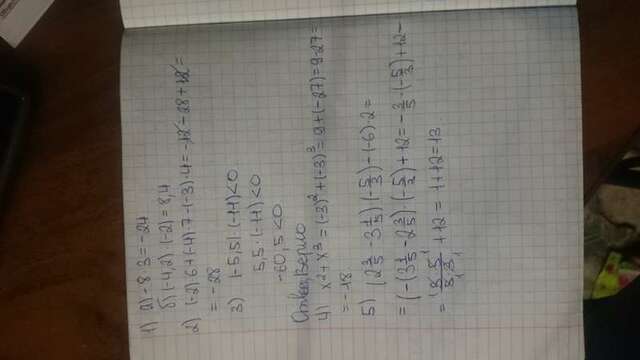 1) а) -8·3=-24
б) (-4,2)·(-2)=8,4
2) (-2)·6+(-4)·7-(-3)·4=-12-28+12=
=-28
3) |-5,5|·(-11)<0
5,5·(-11)<0
-60,5<0
Ответ: верно
4) x²+x³=(-3)²+(-3)³=9+(-27)=9-27=
=-18
5) (2 2/5-3 1/5)·(-5/3)-(-6)·2=
=(-(3 1/5-2 3/5)·(-5/3)+12=-3/5·(-5/3)+12=
=(3·5/5·3)+12=1+12=13